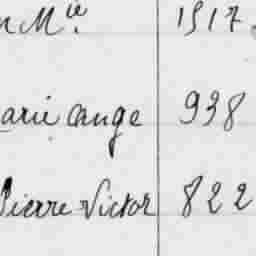 n Mie 1517
arie ange 938
Pierre Victor 822